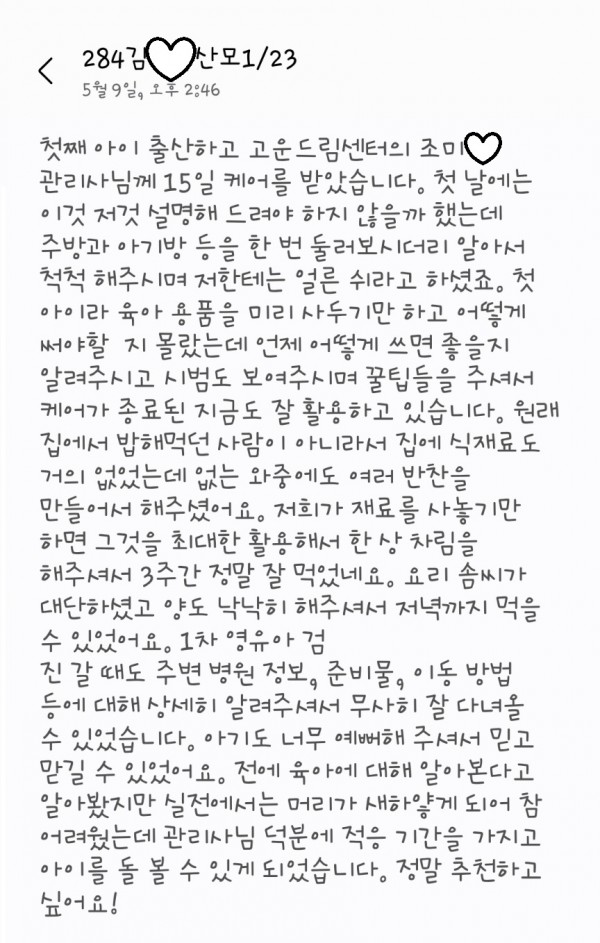 284김 산모1/23
5월 9일, 오후 2:46
첫째 아이 출산하고 고운드림센터의 조미
관리사님께 15일 케어를 받았습니다. 첫 날에는
이것 저것 설명해 드려야 하지 않을까 했는데
주방과 아기방 등을 한 번 둘러보시더리 알아서
척척 해주시며 저한테는 얼른 쉬라고 하셨죠. 첫
아이라 육아 용품을 미리 사두기만 하고 어떻게
써야할 지 몰랐는데 언제 어떻게 쓰면 좋을지
알려주시고 시범도 보여주시며 꿀팁들을 주셔서
케어가 종료된 지금도 잘 활용하고 있습니다. 원래
집에서 밥해먹던 사람이 아니라서 집에 식재료도
거의 없었는데 없는 와중에도 여러 반찬을
만들어서 해주셨어요. 저희가 재료를 사놓기만
하면 그것을 최대한 활용해서 한 상 차림을
해주셔서 3주간 정말 잘 먹었네요. 요리 솜씨가
대단하셨고 양도 낙낙히 해주셔서 저녁까지 먹을
수 있었어요. 1차 영유아 검
진 갈 때도 주변 병원 정보, 준비물, 이동 방법
등에 대해 상세히 알려주셔서 무사히 잘 다녀올
수 있었습니다. 아기도 너무 예뻐해 주셔서 믿고
맏길 수 있었어요. 전에 육아에 대해 알아본다고
알아봤지만 실전에서는 머리가 새하얗게 되어 참
어려웠는데 관리사님 덕분에 적응 기간을 가지고
아이를 돌 볼 수 있게 되었습니다. 정말 추천하고
싶어요!